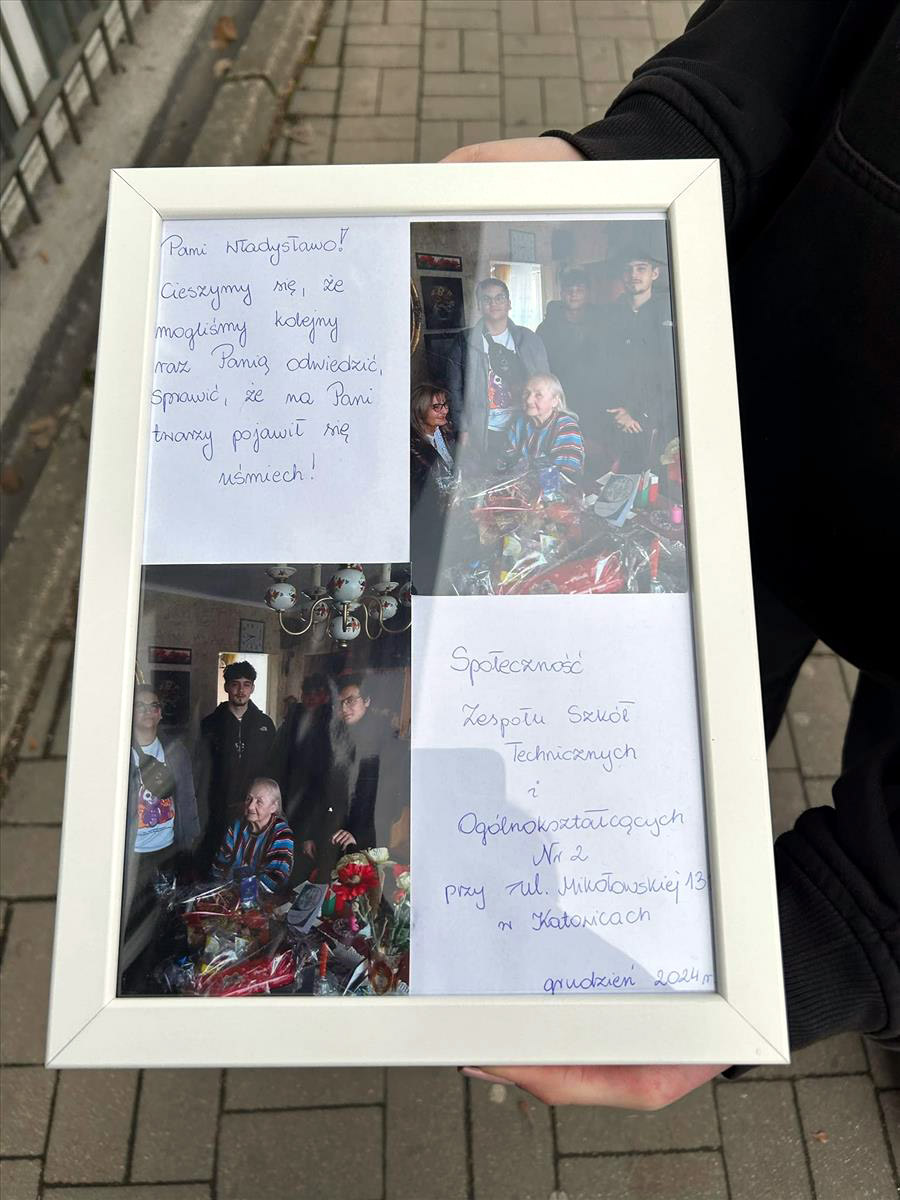 Pani Władysławo!
Cieszymy się, że
mogliśmy kolejny
raz Panią odwiedzić,
sprawić, że na Pani
twarzy pojawił się
uśmiech!
Społeczność
Zespołu Szkół
Technicznych
i
Ogólnokształcących
Nr 2
przy ul. Mikołowskiej 13
w Katowicach
grudzień 2024 r